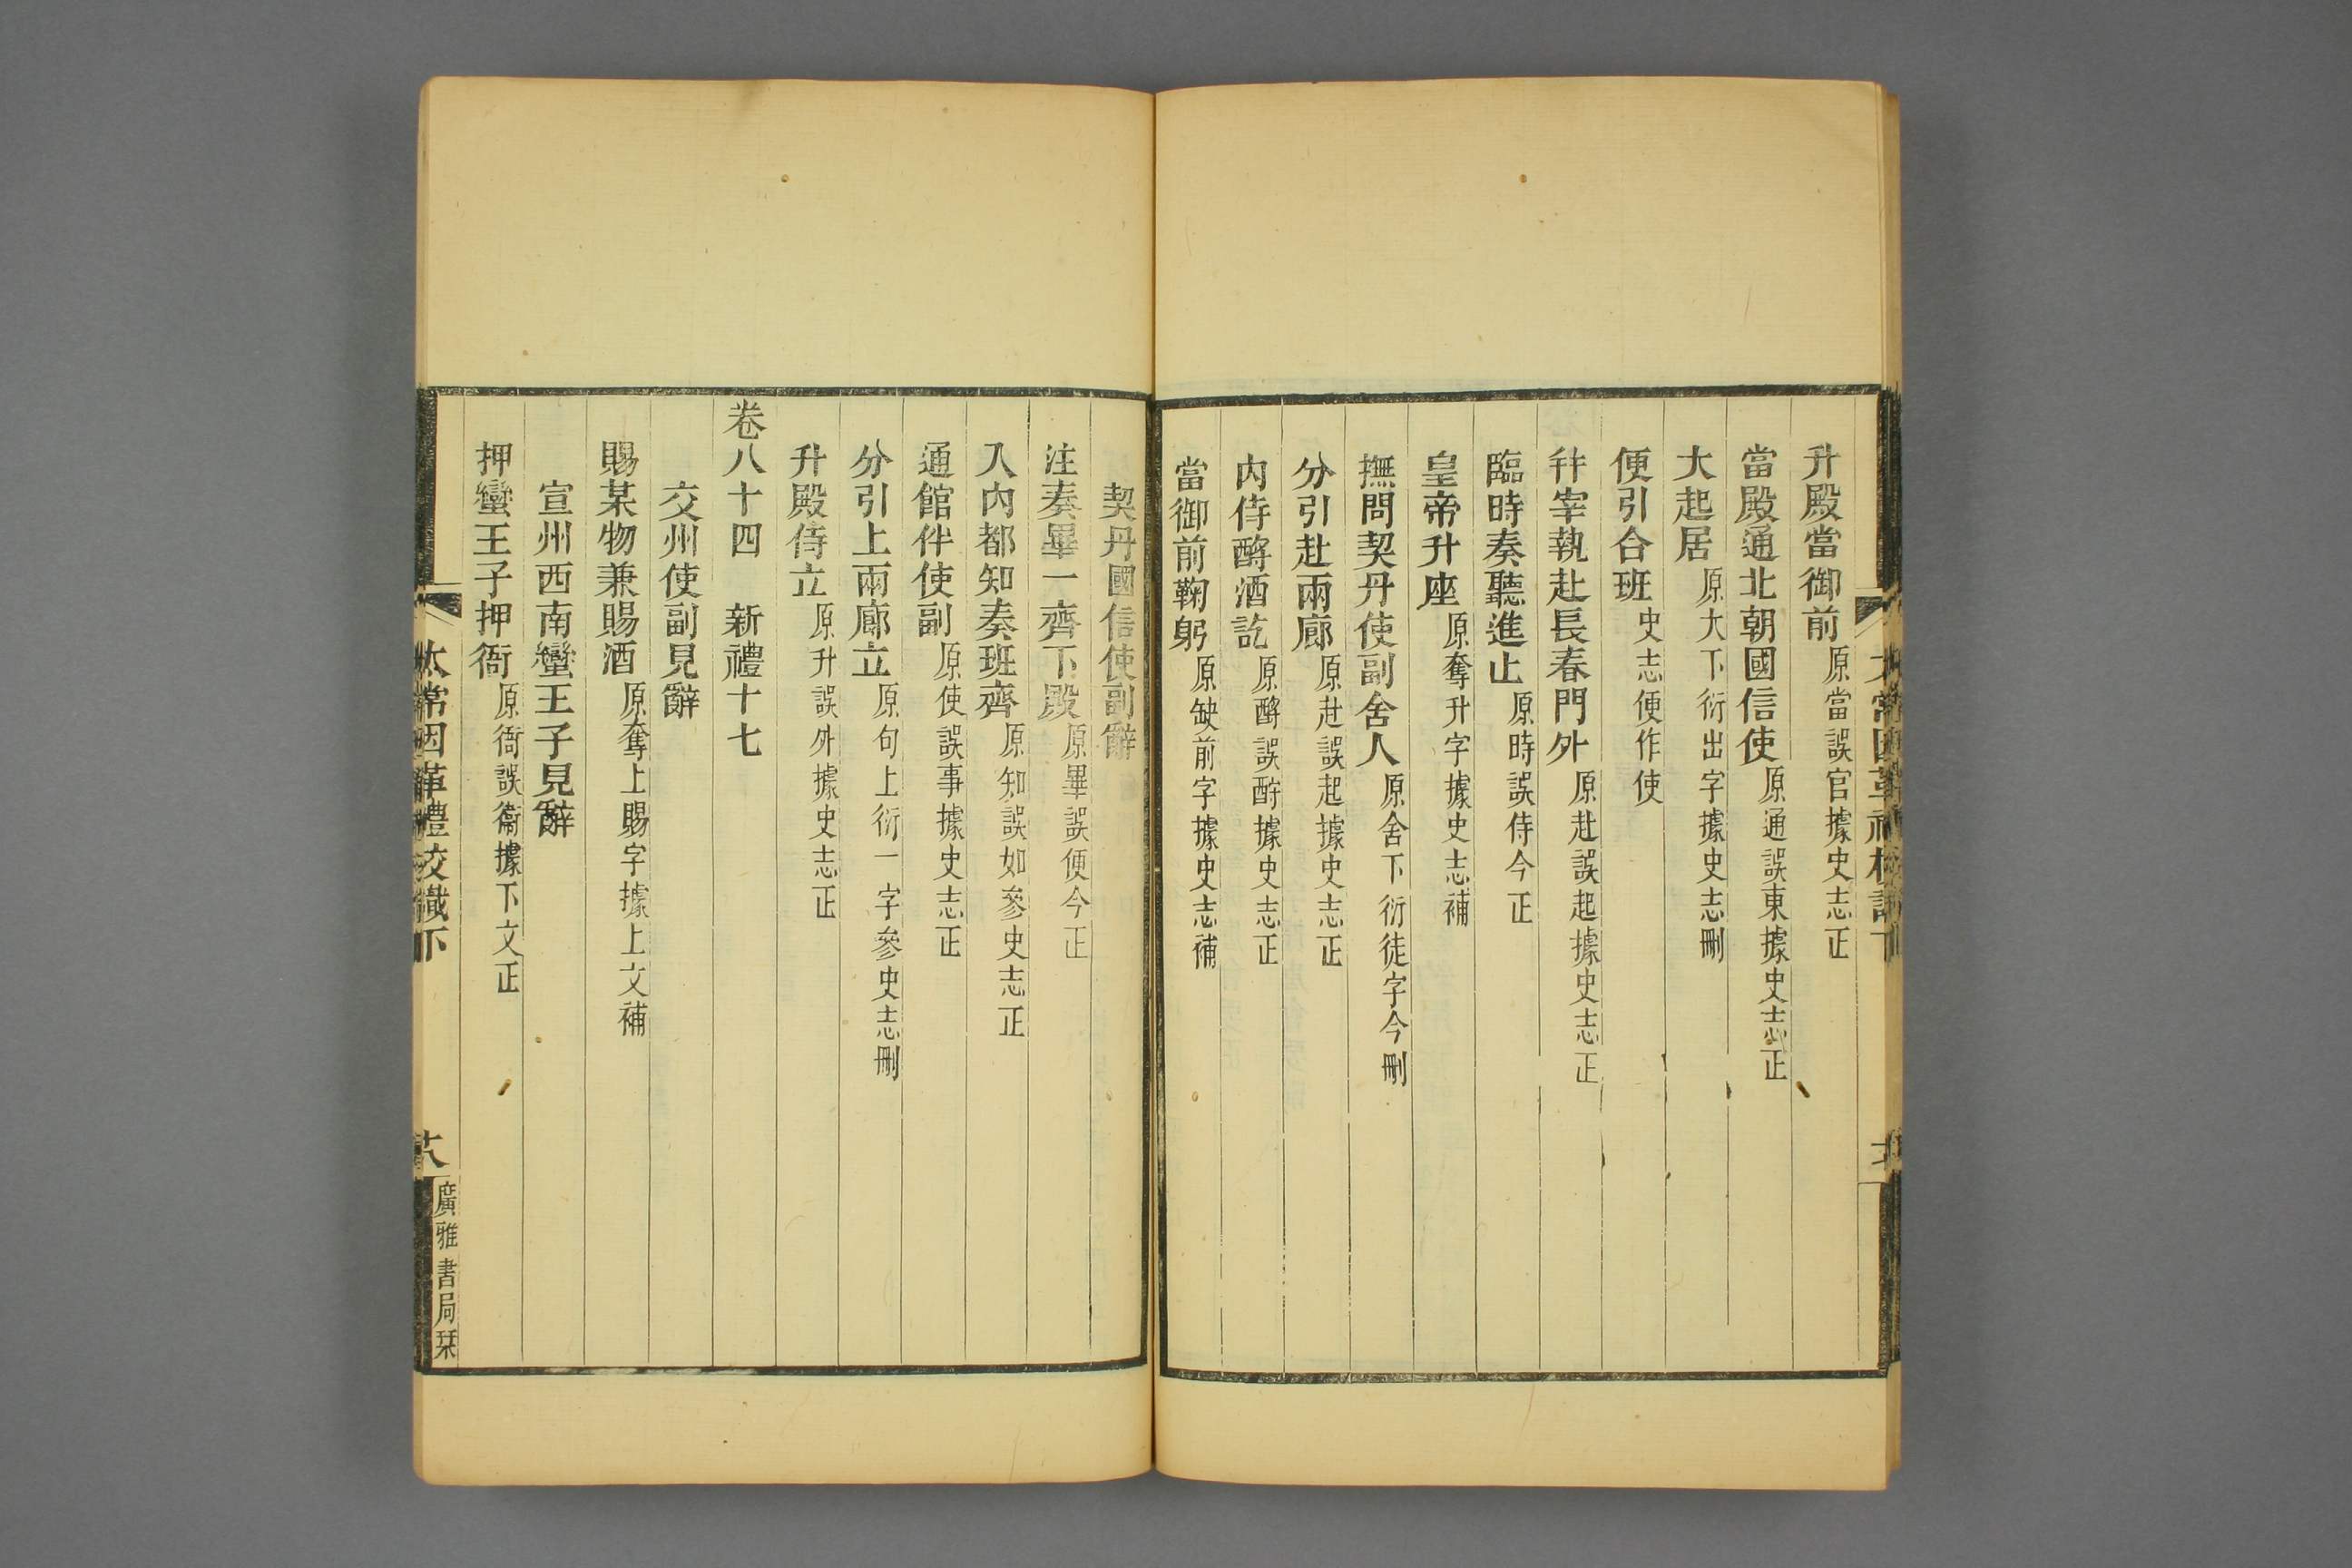 升殿當御前原當誤官據史志正
當殿通北朝國信使原通誤東據史志正
大起居原大下衍出字據史志刪
便引合班史志便作使
幷宰執赴長春門外原赴誤起據史志正
臨時奏聽進止原時誤侍今正
皇帝升座原奪升字據史志補
撫問契丹使副舍人原舍下衍徒字今刪
分引赴兩廊原赴誤起據史志正
內侍酹酒訖原酹誤酧據史志正
當御前鞠躬原缺前字據史志補
契丹國信使副辭
注奏畢一齊下殿原畢誤便今正
入內都知奏班齊原知誤如參史志正
通館伴使副原使誤事據史志正
分引上兩廊立原句上衍一字參史志刪
升殿侍立原升誤外據史志正
卷八十四　新禮十七
交州使副見辭
賜某物兼賜酒原奪上賜字據上文補
宣州西南蠻王子見辭
押蠻王子押衙原衙誤衞據下文正
太常因革禮校識下
十八
廣雅書局栞